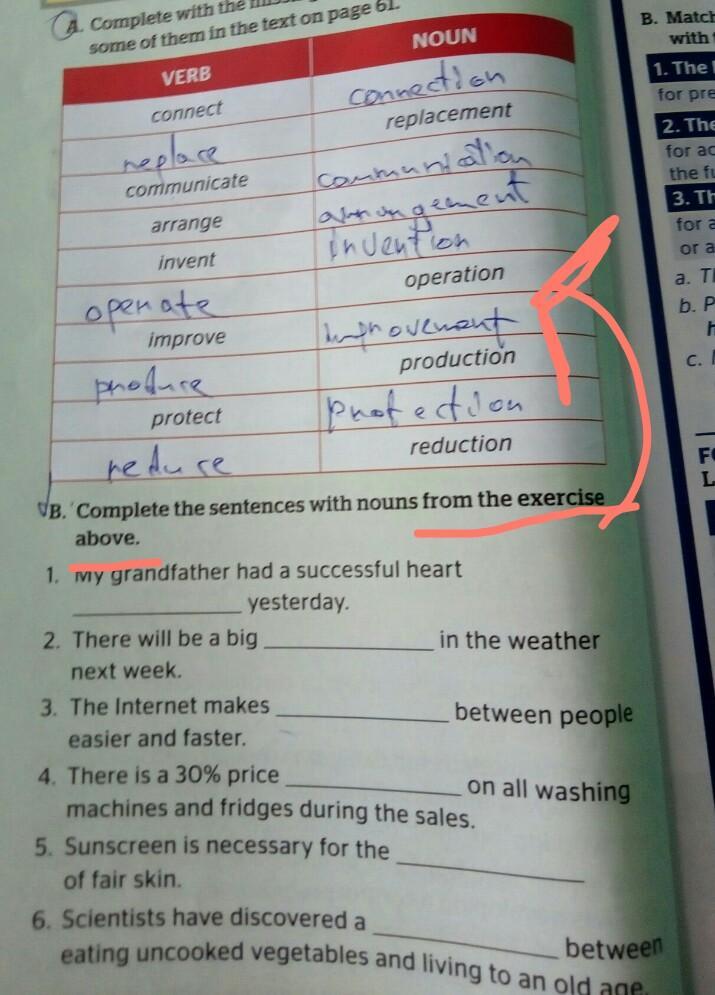 A. Complete with the
some of them in the text on page 61.
VERB NOUN
connect connection
replace replacement
communicate communication
arrange arrangement
invent invention
operate operation
improve improvement
produce production
protect protection
reduce reduction
B. Complete the sentences with nouns from the exercise
above.
1. My grandfather had a successful heart
yesterday.
2. There will be a big in the weather
next week.
3. The Internet makes between people
easier and faster.
4. There is a 30% price on all washing
machines and fridges during the sales.
5. Sunscreen is necessary for the
of fair skin.
6. Scientists have discovered a between
eating uncooked vegetables and living to an old age.
B. Match
with
1. The
for pre
2. The
for ac
the fu
3. Th
for a
or a
a. Tl
b. P
h
c.
F
L